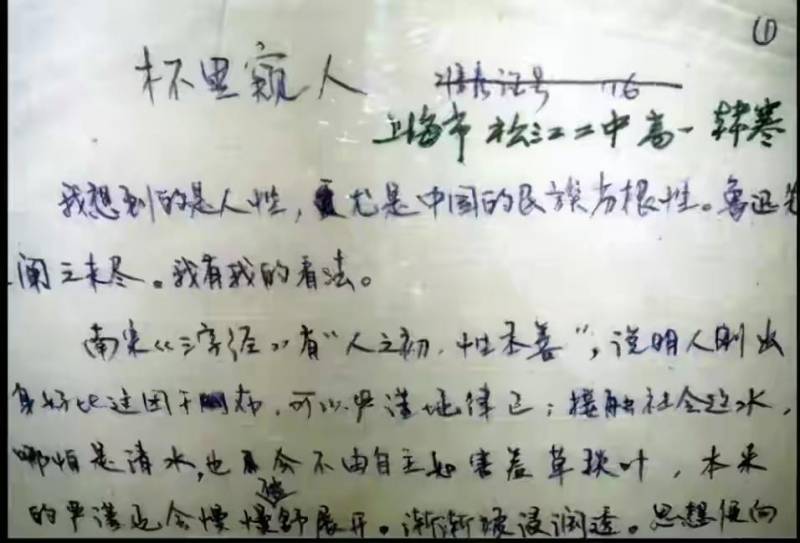 ①
杯里窥人
准考证号 16
上海市 松江二中 高一 韩寒
我想到的是人性，尤是中国的民族劣根性。鲁迅先
阐之未尽。我有我的看法。
南宋《三字经》有“人之初，性本善”，说明人刚出
身好比这团干布，可以严谨地律己；接触社会这水，
哪怕是清水，也会不由自主如害羞草叶，本来
的严谨也会慢慢舒展开。渐渐被浸润透。思想便向